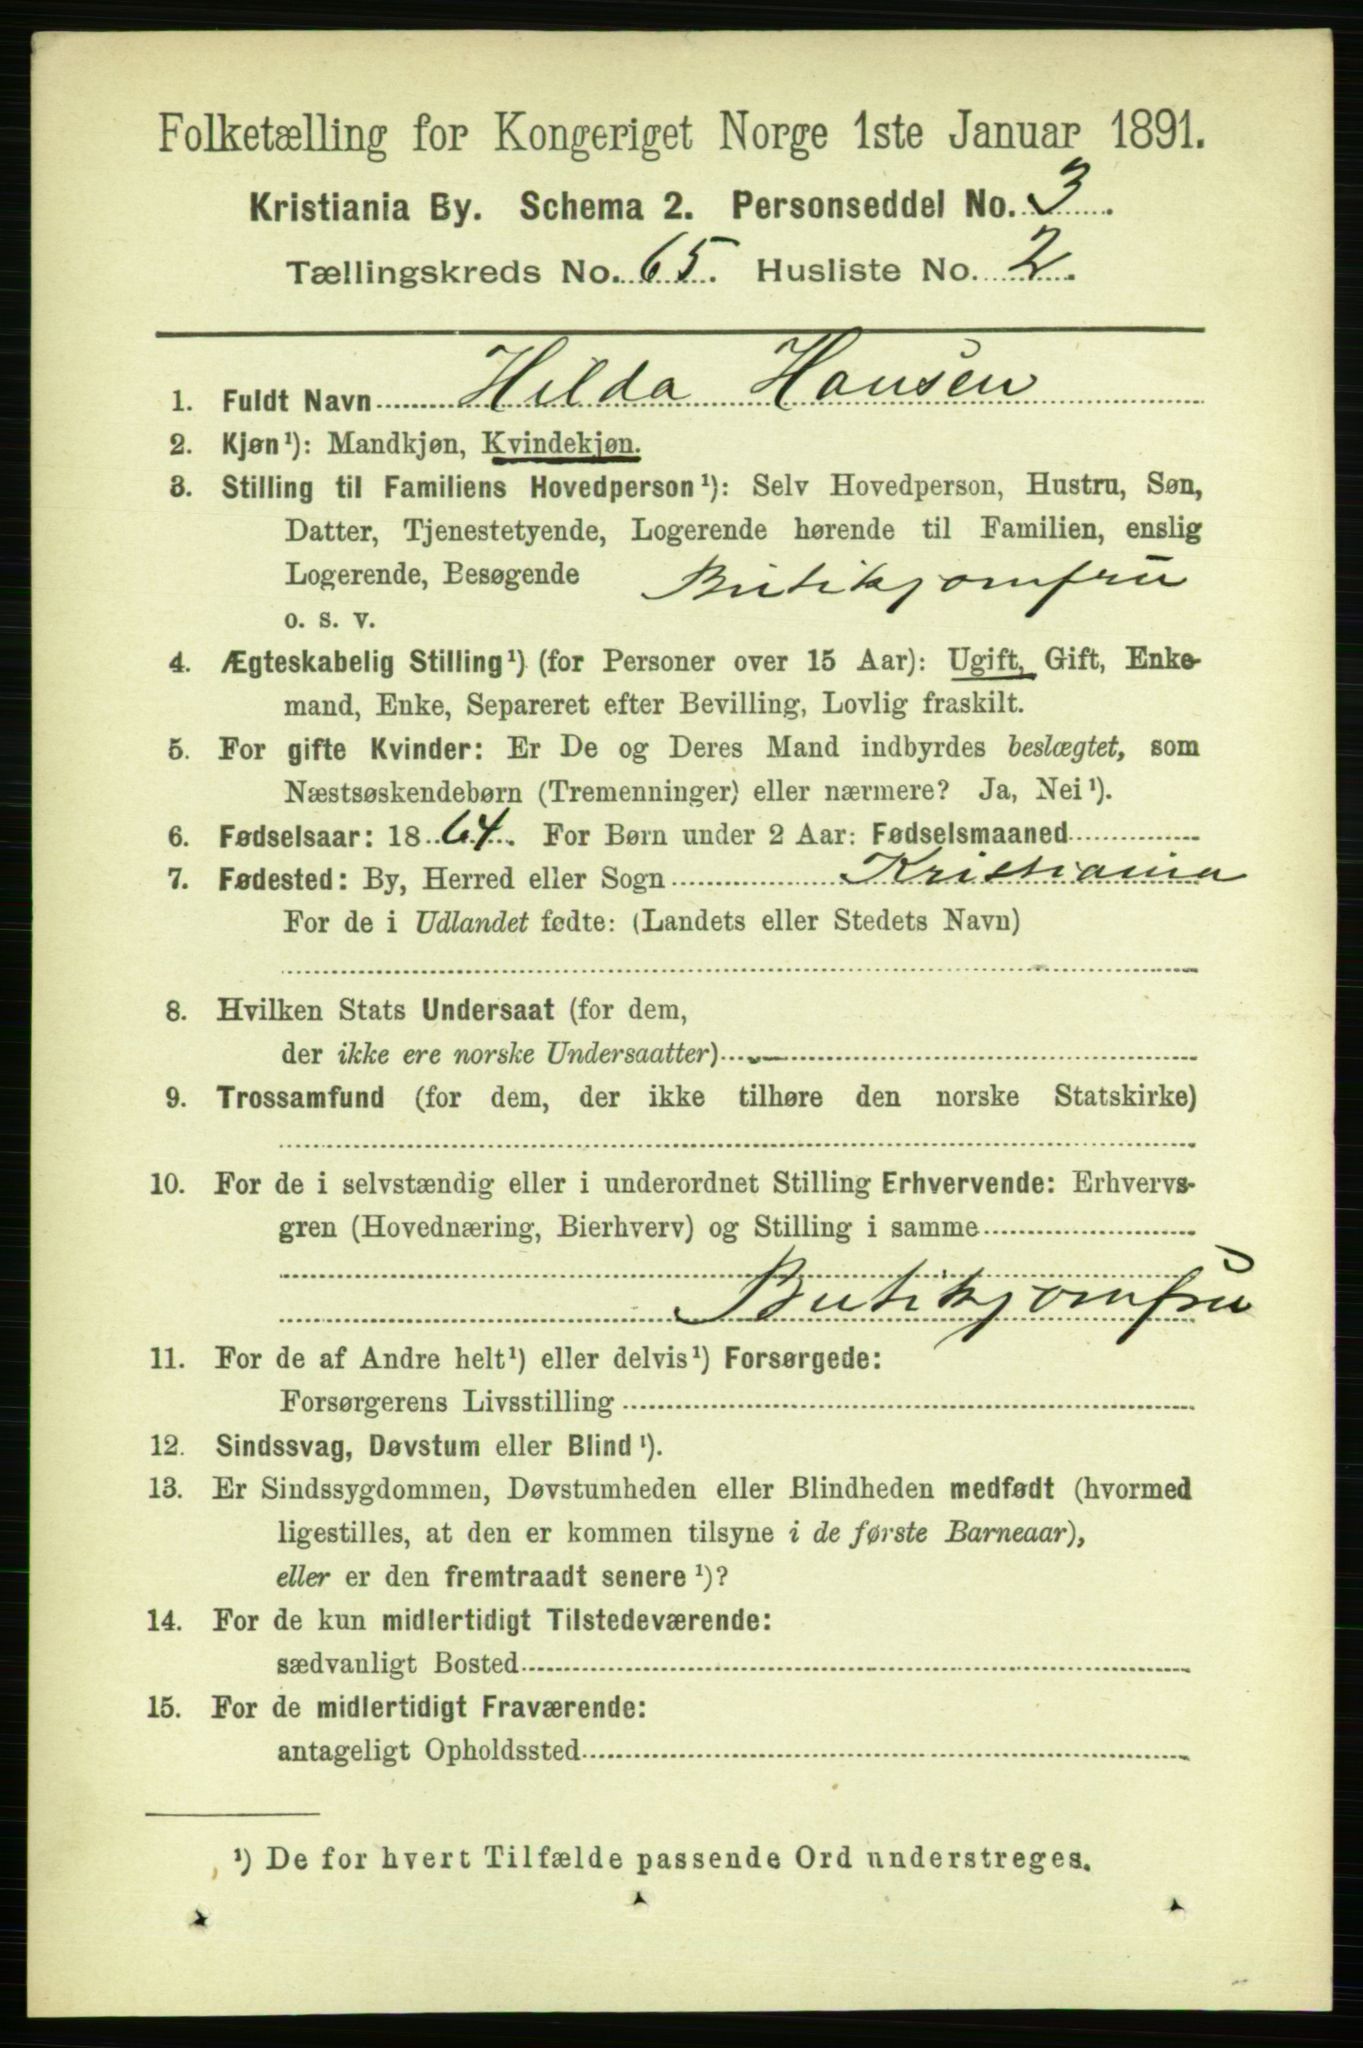 Folketælling for Kongeriget Norge 1ste Januar 1891.
Kristiania By. Schema 2. Personseddel No. 3.
Tællingskreds No. 65. Husliste No. 2.
1. Fuldt Navn Hilda Hansen
2. Kjøn¹): Mandkjøn, Kvindekjøn.
3. Stilling til Familiens Hovedperson¹): Selv Hovedperson, Hustru, Søn,
Datter, Tjenestetyende, Logerende hørende til Familien, enslig
Logerende, Besøgende Butikjomfru
o. s. v.
4. Ægteskabelig Stilling¹) (for Personer over 15 Aar): Ugift, Gift, Enke-
mand, Enke, Separeret efter Bevilling, Lovlig fraskilt.
5. For gifte Kvinder: Er De og Deres Mand indbyrdes beslægtet, som
Næstsøskendebørn (Tremenninger) eller nærmere? Ja, Nei¹).
6. Fødselsaar: 1864. For Børn under 2 Aar: Fødselsmaaned
7. Fødested: By, Herred eller Sogn Kristiania
For de i Udlandet fødte: (Landets eller Stedets Navn)
8. Hvilken Stats Undersaat (for dem,
der ikke ere norske Undersaatter)
9. Trossamfund (for dem, der ikke tilhøre den norske Statskirke)
10. For de i selvstændig eller i underordnet Stilling Erhvervende: Erhvervs-
gren (Hovednæring, Bierhverv) og Stilling i samme
Butikjomfru
11. For de af Andre helt¹) eller delvis¹) Forsørgede:
Forsørgerens Livsstilling
12. Sindssvag, Døvstum eller Blind¹).
13. Er Sindssygdommen, Døvstumheden eller Blindheden medfødt (hvormed
ligestilles, at den er kommen tilsyne i de første Barneaar),
eller er den fremtraadt senere¹)?
14. For de kun midlertidigt Tilstedeværende:
sædvanligt Bosted
15. For de midlertidigt Fraværende:
antageligt Opholdssted
¹) De for hvert Tilfælde passende Ord understreges.